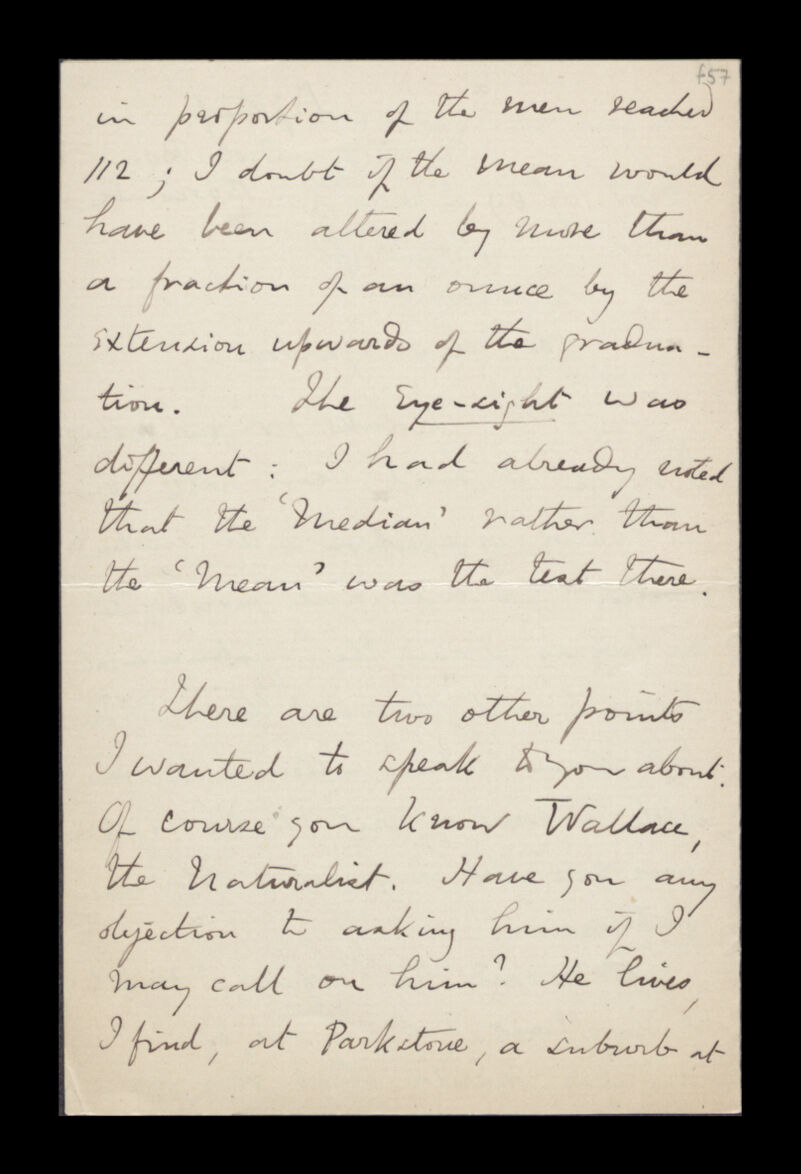 f57
in proportion of the men reached
112 ; I doubt if the mean would
have been altered by more than
a fraction of an ounce by the
extension upwards of the gradua-
tion. The Eye-sight was
different : I had already noted
that the 'Median' rather than
the 'Mean' was the test there.
There are two other points
I wanted to speak to you about.
Of course you know Wallace,
the Naturalist. Have you any
objection to asking him if I
may call on him? He lives,
I find, at Parkstone, a suburb at